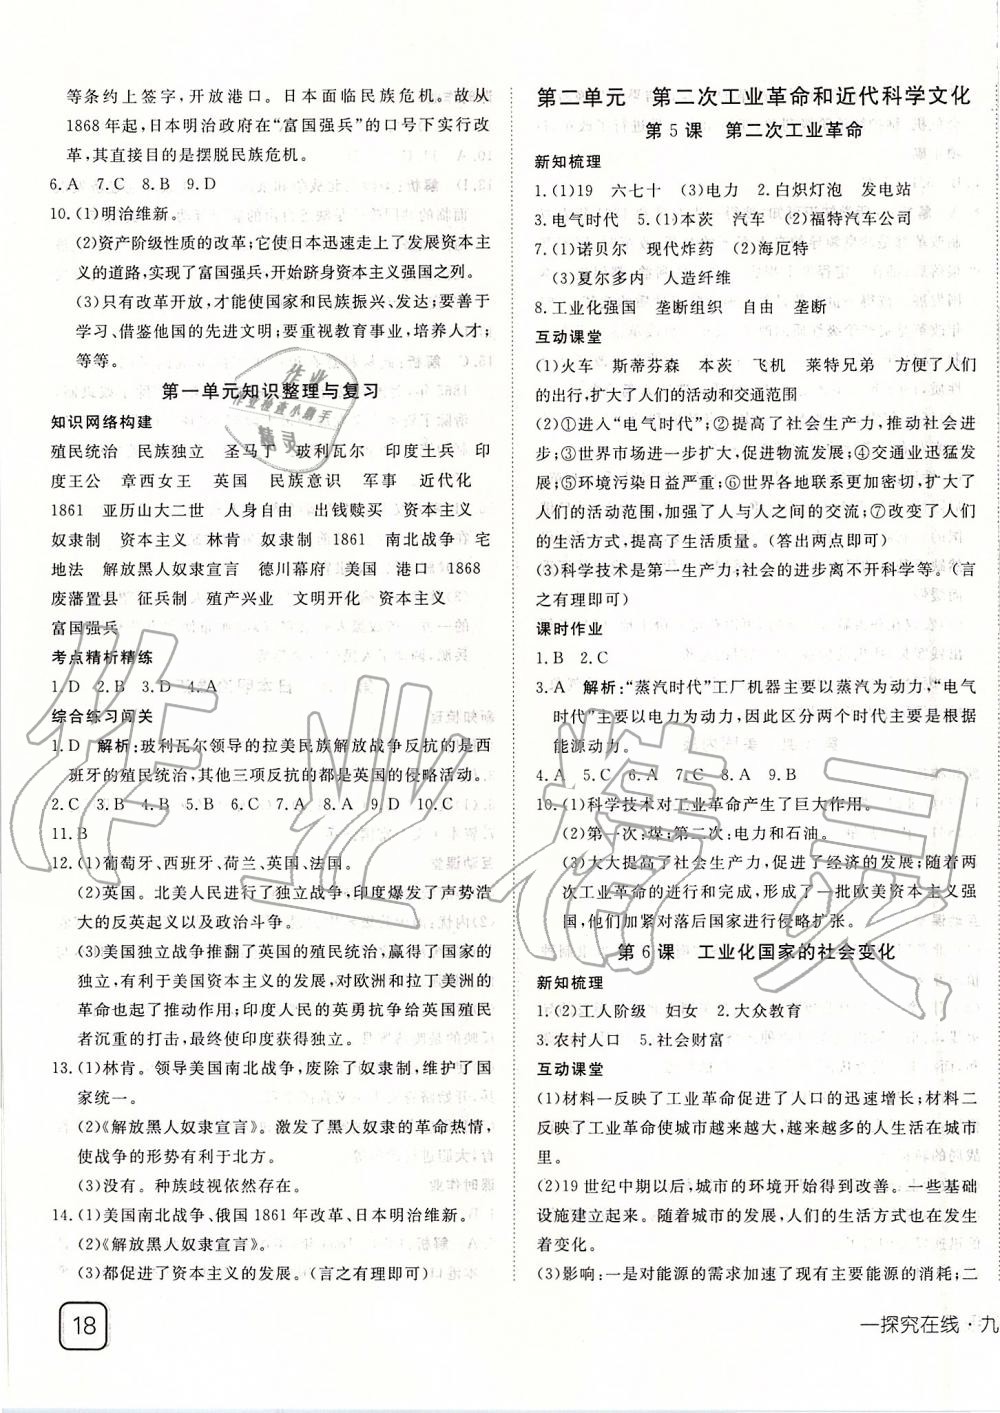 等条约上签字,开放港口。日本面临民族危机。故从
1868年起,日本明治政府在“富国强兵”的口号下实行改
革,其直接目的是摆脱民族危机。
6.A 7.C 8.B 9.D
10.(1)明治维新。
(2)资产阶级性质的改革;它使日本迅速走上了发展资本主
义的道路,实现了富国强兵,开始跻身资本主义强国之列。
(3)只有改革开放,才能使国家和民族振兴、发达;要善于
学习、借鉴他国的先进文明;要重视教育事业,培养人才;
等等。
第一单元知识整理与复习
知识网络构建
殖民统治 民族独立 圣马丁 玻利瓦尔 印度土兵 印
度王公 章西女王 英国 民族意识 军事 近代化
1861 亚历山大二世 人身自由 出钱赎买 资本主义
奴隶制 资本主义 林肯 奴隶制 1861 南北战争 宅
地法 解放黑人奴隶宣言 德川幕府 美国 港口 1868
废藩置县 征兵制 殖产兴业 文明开化 资本主义
富国强兵
考点精析精练
1.D 2.B 3.D 4.A
综合练习闯关
1.D 解析:玻利瓦尔领导的拉美民族解放战争反抗的是西
班牙的殖民统治,其他三项反抗的都是英国的侵略活动。
2.C 3.B 4.B 5.B 6.C 7.B 8.D 9.D 10.C
11.B
12.(1)葡萄牙、西班牙、荷兰、英国、法国。
(2)英国。北美人民进行了独立战争,印度爆发了声势浩
大的反英起义以及政治斗争。
(3)美国独立战争推翻了英国的殖民统治,赢得了国家独
立,有利于美国资本主义的发展,对欧洲和拉丁美洲的
革命起了推动作用;印度人民的英勇抗争给英国殖民
者沉重的打击,最终使印度获得独立。
13.(1)林肯。美国南北战争,废除了奴隶制,维护了国
家统一。
(2)《解放黑人奴隶宣言》。激发了黑人奴隶的革命热情,
使战争的形势有利于北方。
(3)没有。种族歧视依然存在。
14.(1)美国南北战争、俄国1861年改革、日本明治维新。
(2)《解放黑人奴隶宣言》。
(3)都促进了资本主义的发展。(言之有理即可)
18
第二单元 第二次工业革命和近代科学文化
第5课 第二次工业革命
新知梳理
1.(1)19 六七十 (3)电力 2.白炽灯泡 发电站
3.电气时代 5.(1)本茨 汽车 (2)福特汽车公司
7.(1)诺贝尔 现代炸药 (2)海厄特
(3)夏尔多内 人造纤维
8.工业化强国 垄断组织 自由 垄断
互动课堂
(1)火车 斯蒂芬森 本茨 飞机 莱特兄弟 方便了人们
的出行,扩大了人们的活动和交通范围
(2)①进入“电气时代”;②提高了社会生产力,推动社会进
步;③市场进一步扩大,促进物流发展;④经济发展迅猛快
速;⑤环境污染日益严重;⑥世界各地联系更加密切,扩大了
人们的活动范围,加强了人与人之间的交流;⑦改变了人们
的生活方式,提高了生活质量。(答出两点即可)
(3)科学技术是第一生产力;社会的进步离不开科学等。(言
之有理即可)
课时作业
1.B 2.C
3.A 解析:“蒸汽时代”工厂机器主要以蒸汽为动力,“电气
时代”主要以电力为动力,因此区分两个时代主要是根据
能源动力。
4.A 5.C 6.A 7.A 8.C 9.B
10.(1)科学技术对工业革命产生了巨大作用。
(2)第一次:煤;第二次:电力和石油。
(3)大大提高了社会生产力,促进了经济的发展;随着两
次工业革命的进行和完成,形成了一批欧美资本主义强
国,他们加紧对落后国家进行侵略扩张。
第6课 工业化国家的社会变化
新知梳理
1.(2)工人阶级 妇女 2.大众教育
3.农村人口 5.社会财富
互动课堂
(1)材料一反映了工业革命促进了人口的迅速增长;材料二
反映了工业革命使城市越来越大,越来越多的人生活在城市
里。
(2)19世纪中期以后,城市的环境开始得到改善。一些基础
设施建立起来。随着城市的发展,人们的生活方式也在发生
着变化。
(3)影响:一是对能源的需求加速了现有主要能源的消耗;二
一探究在线·九
作业
作业检查小助手
精灵
作业精灵